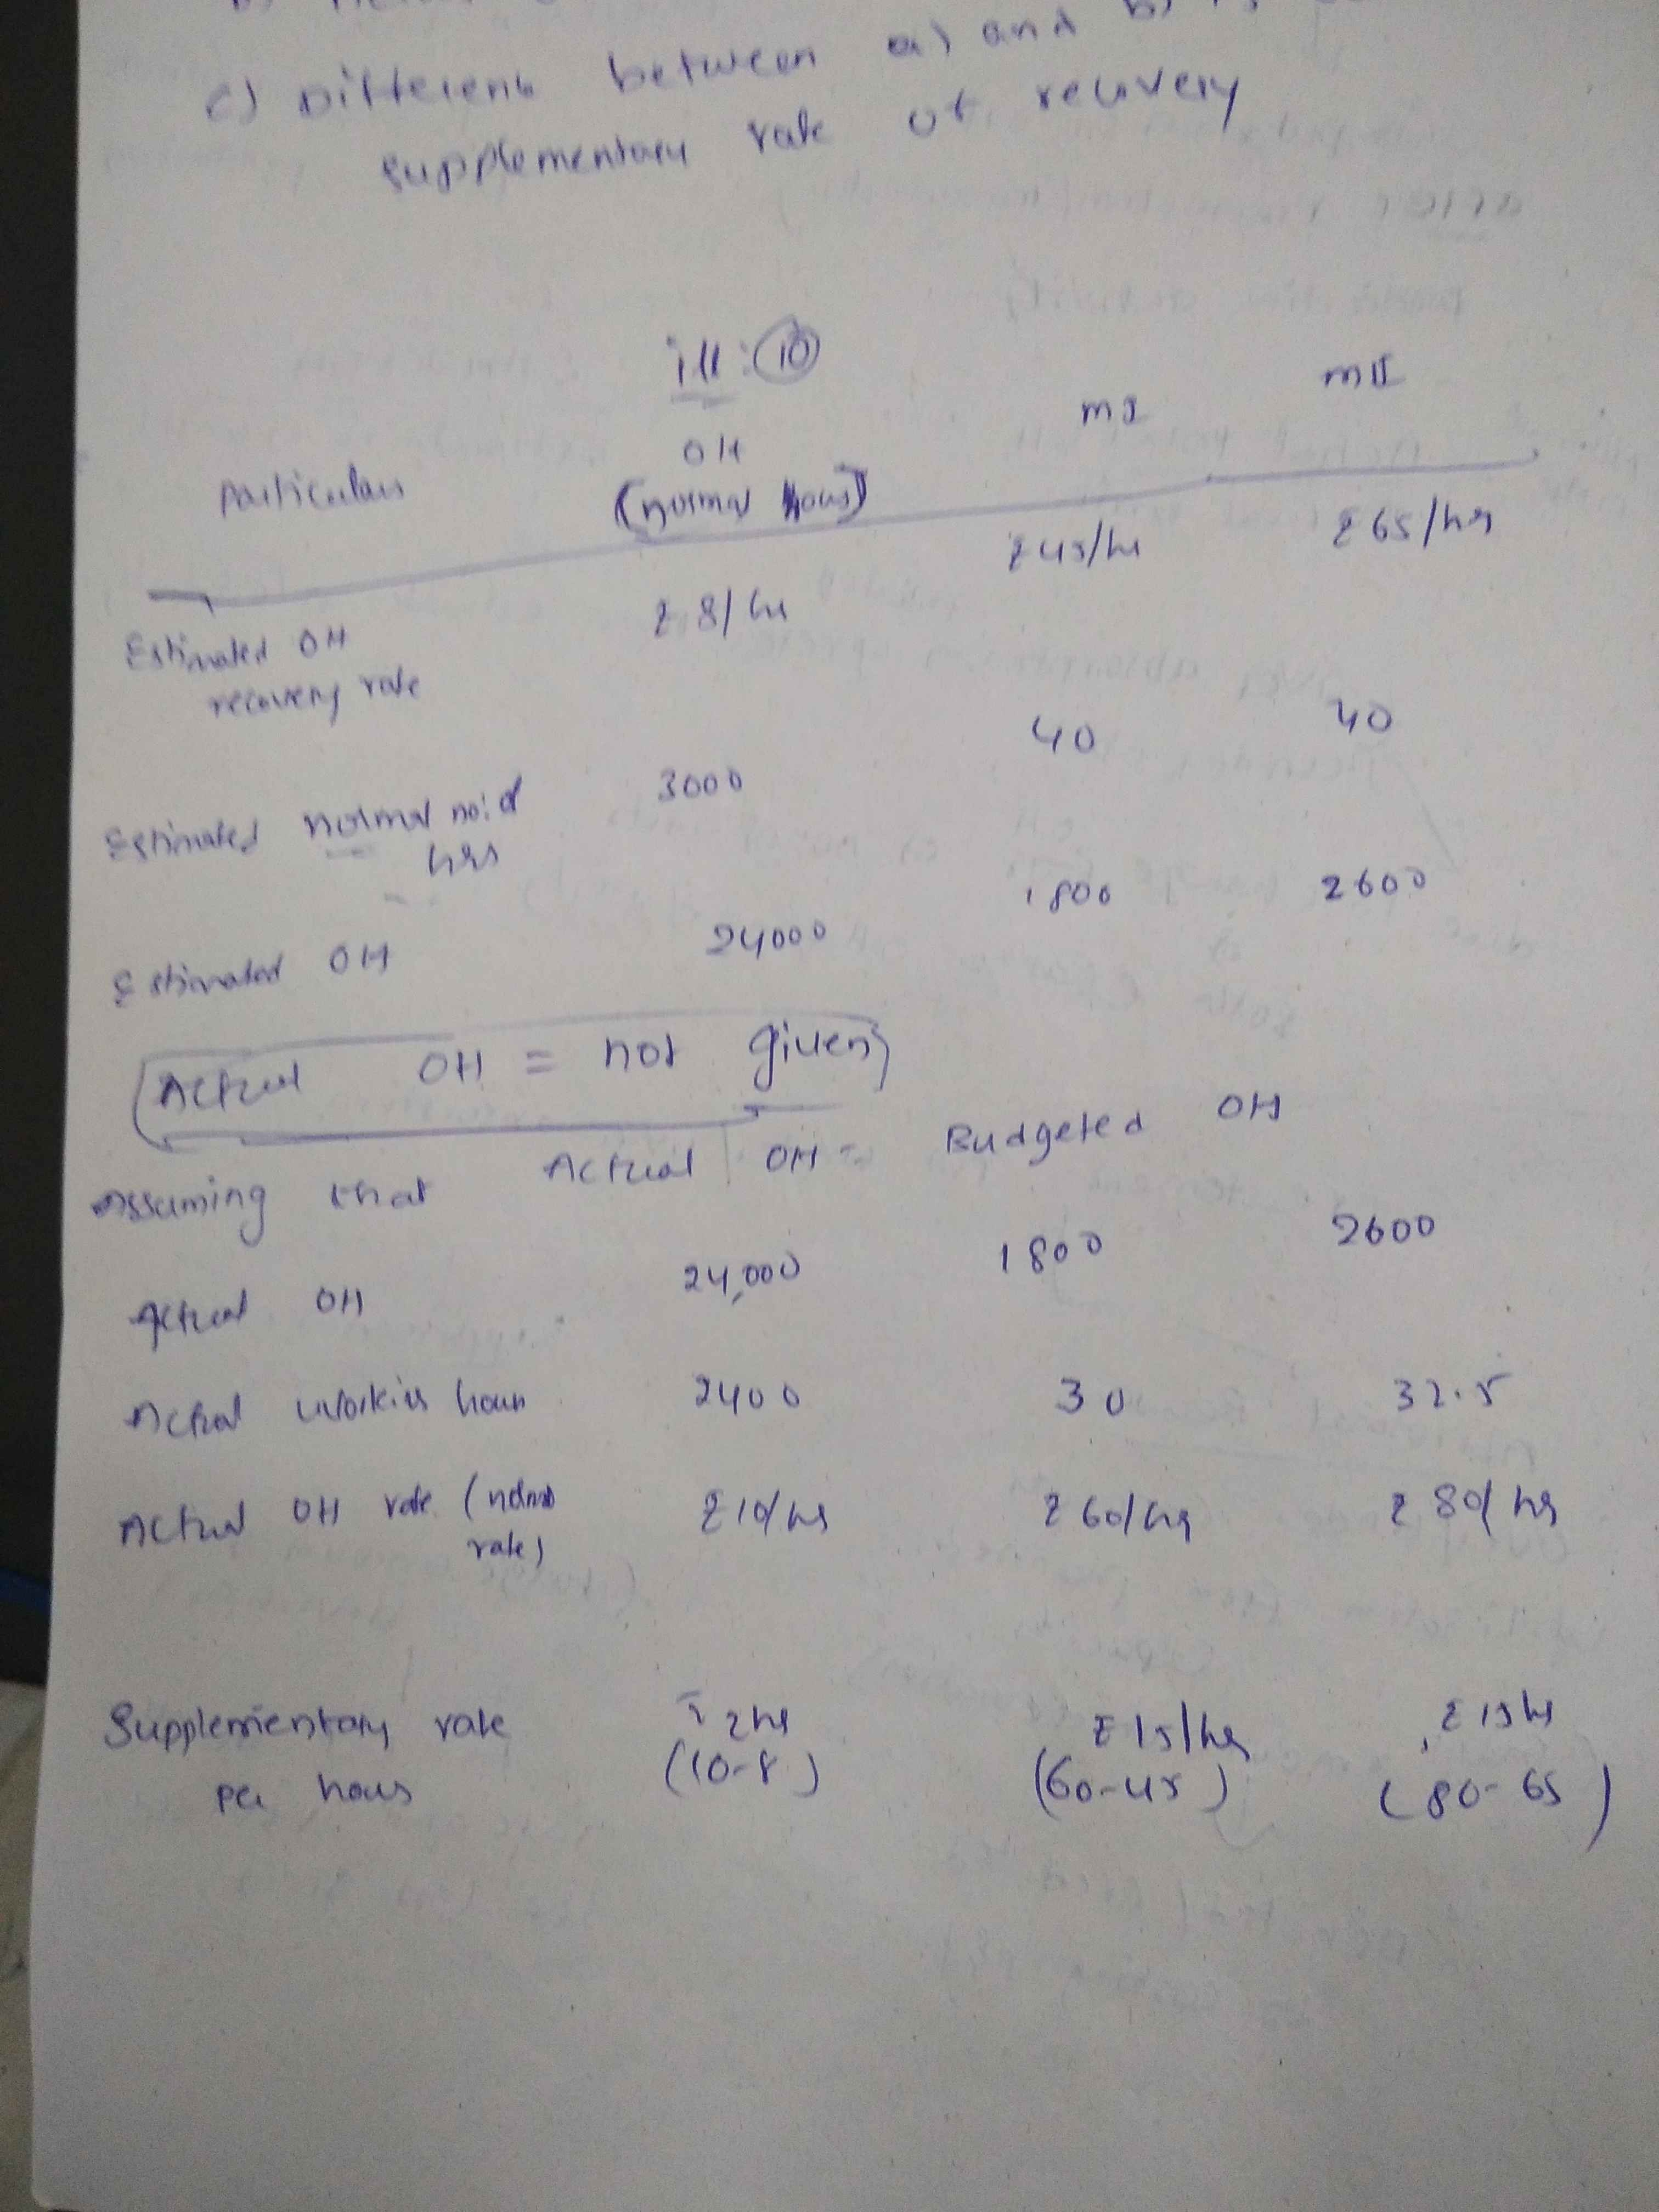 c) Different between a) and b)
supplementary rate of recovery
ill : 10
Particulars OH mI mII
(normal hours)
Estimated OH ₹ 8/hr ₹ 45/hr ₹ 65/hrs
recovery rate
Estimated normal no: of 3000 40 40
hrs
Estimated OH 24000 1800 2600
Actual OH = not given
Assuming that Actual OH = Budgeted OH
Actual OH 24,000 1800 2600
Actual working hours 2400 30 32.5
Actual OH rate ( ₹ 10/hrs ₹ 60/hrs ₹ 80/hrs
rate)
Supplementary rate ₹ 2hr ₹ 15/hrs ₹ 15hr
per hours (10-8) (60-45) (80-65)